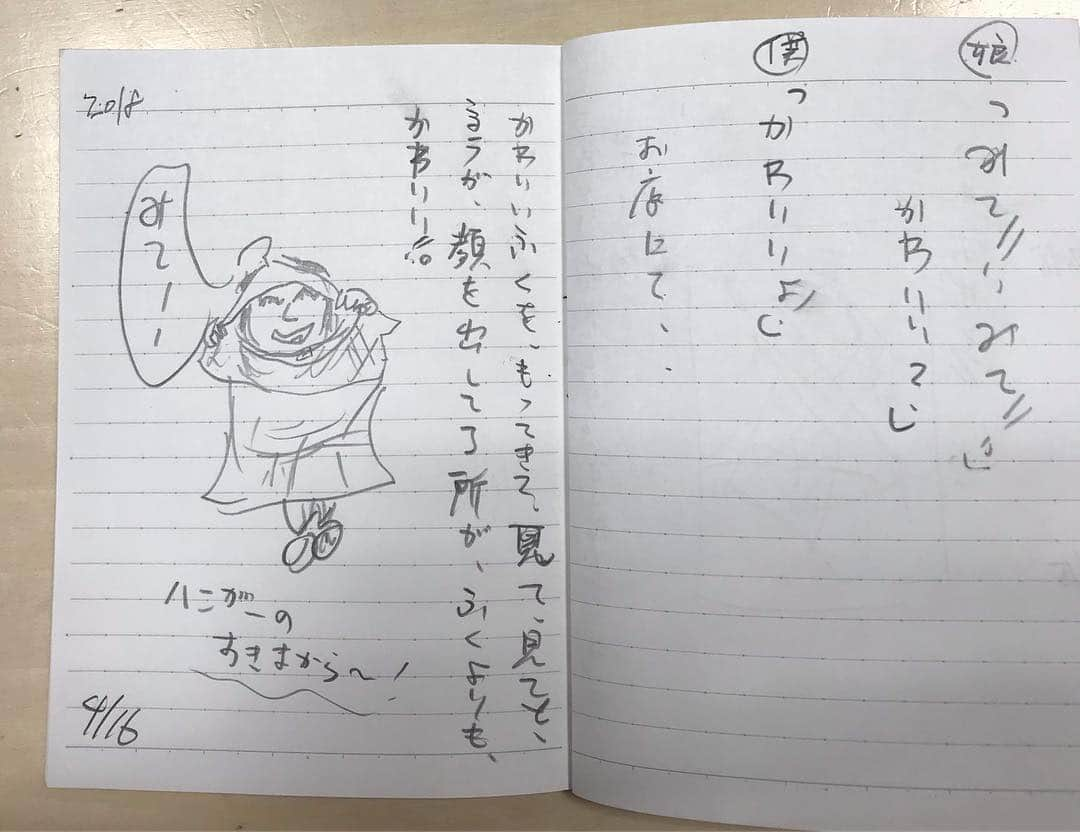 娘「みて!!、みて!!」
かわいいて」
僕「かわいいよ」
お店にて、
かわいいふくを、もってきて、見て、見てと、
顔を出してる所が、ふくよりも、
かわいい
みてーー
ハンガーの
すきまから〜!
2018
4/16